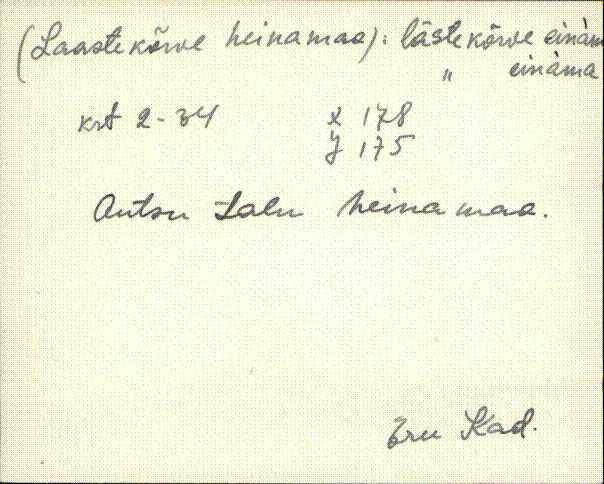 (Laastekõrve heinamaa): lästekõrve einàm
" einàma
krt 2-34 x 178
y 175
Antsu talu heinamaa.
Eru Kad.